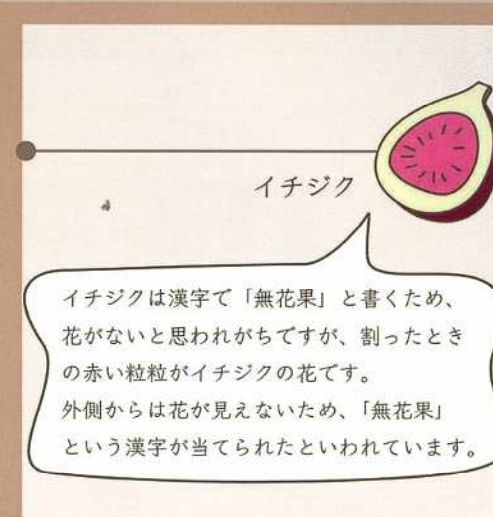 イチジク
イチジクは漢字で「無花果」と書くため、
花がないと思われがちですが、割ったとき
の赤い粒粒がイチジクの花です。
外側からは花が見えないため、「無花果」
という漢字が当てられたといわれています。